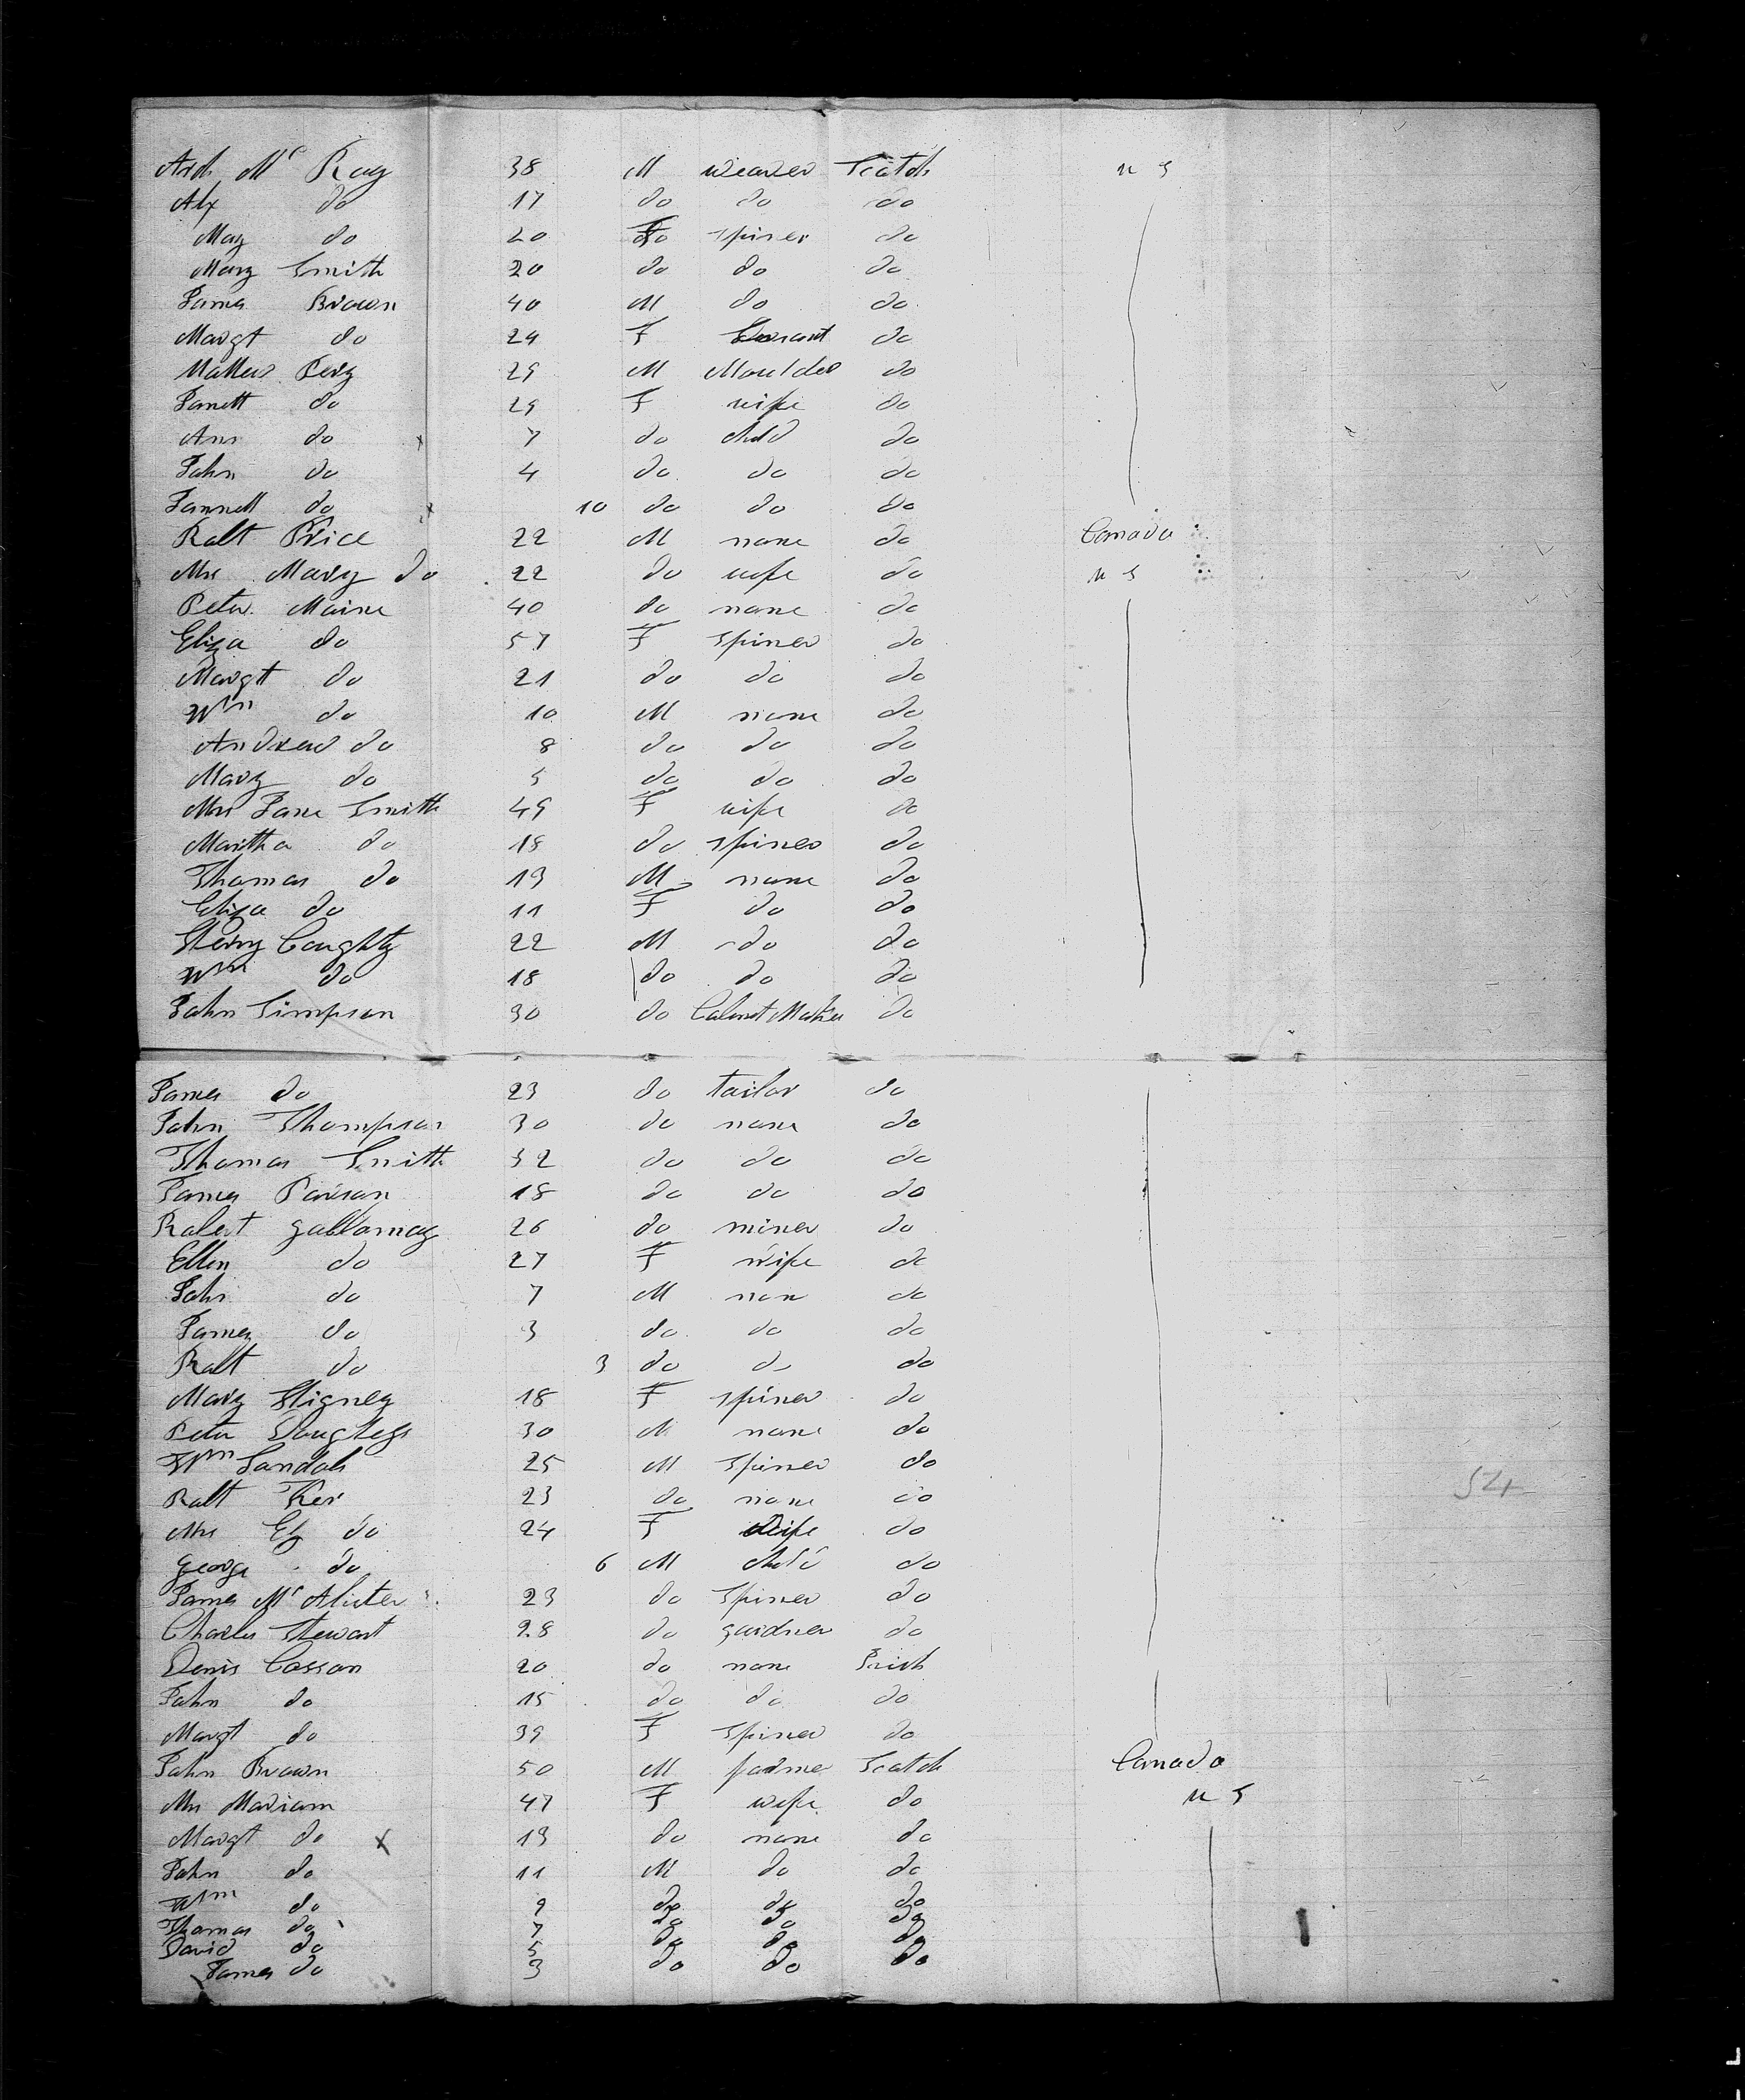 Ard Mc Ray 38 M weaver Scotch U S
Alx do 17 do do do
May do 20 F spiner do
Mary Smith 20 do do do
James Brown 40 M do do
Margt do 24 F Servant do
Mathew Perry 29 M Moulder do
Janett do 29 F wife do
Ann do x 7 do child do
John do 4 do do do
Jannett do x 10 do do do
Robt Price 22 M none do Canada
Mrs Mary do 22 do wife do U S
Peter Maine 40 do none do
Eliza do 57 F spiner do
Margtt do 21 do do do
Wm do 10 M none do
Andrew do 8 do do do
Mary do 5 do do do
Mrs Jane Smith 49 F wife do
Martha do 18 do spiner do
Thomas do 13 M none do
Eliza do 11 F do do
Henry Coughty 22 M do do
Wm do 18 do do do
John Simpson 30 do Cabinet Maker do
James do 23 do tailor do
John Thompson 30 do none do
Thomas Smith 32 do do do
James Parson 18 do do do
Robert gallaway 26 do miner do
Ellen do 27 F wife do
John do 7 M non do
James do 3 do do do
Robt do 3 do do do
Mary Stigney 18 F spiner do
Peter Douglass 30 M none do
Wm Sandal 25 M Spiner do
Robt Ker 23 do none do 54
Mrs Elz do 24 F Wife do
george do 6 M child do
James Mc Alister 23 do Spiner do
Charles Stewart 28 do gardner do
Denis Cassan 20 do none Irish
John do 15 do do do
Margt do 39 F Spiner do
John Brown 50 M farmer Scotch Canada
Mrs Mariam 47 F wife do U S
Margt do x 13 do none do
John do 11 M do do
Wm do 9 do do do
Thomas do 7 do do do
David do 5 do do do
James do 3 do do do